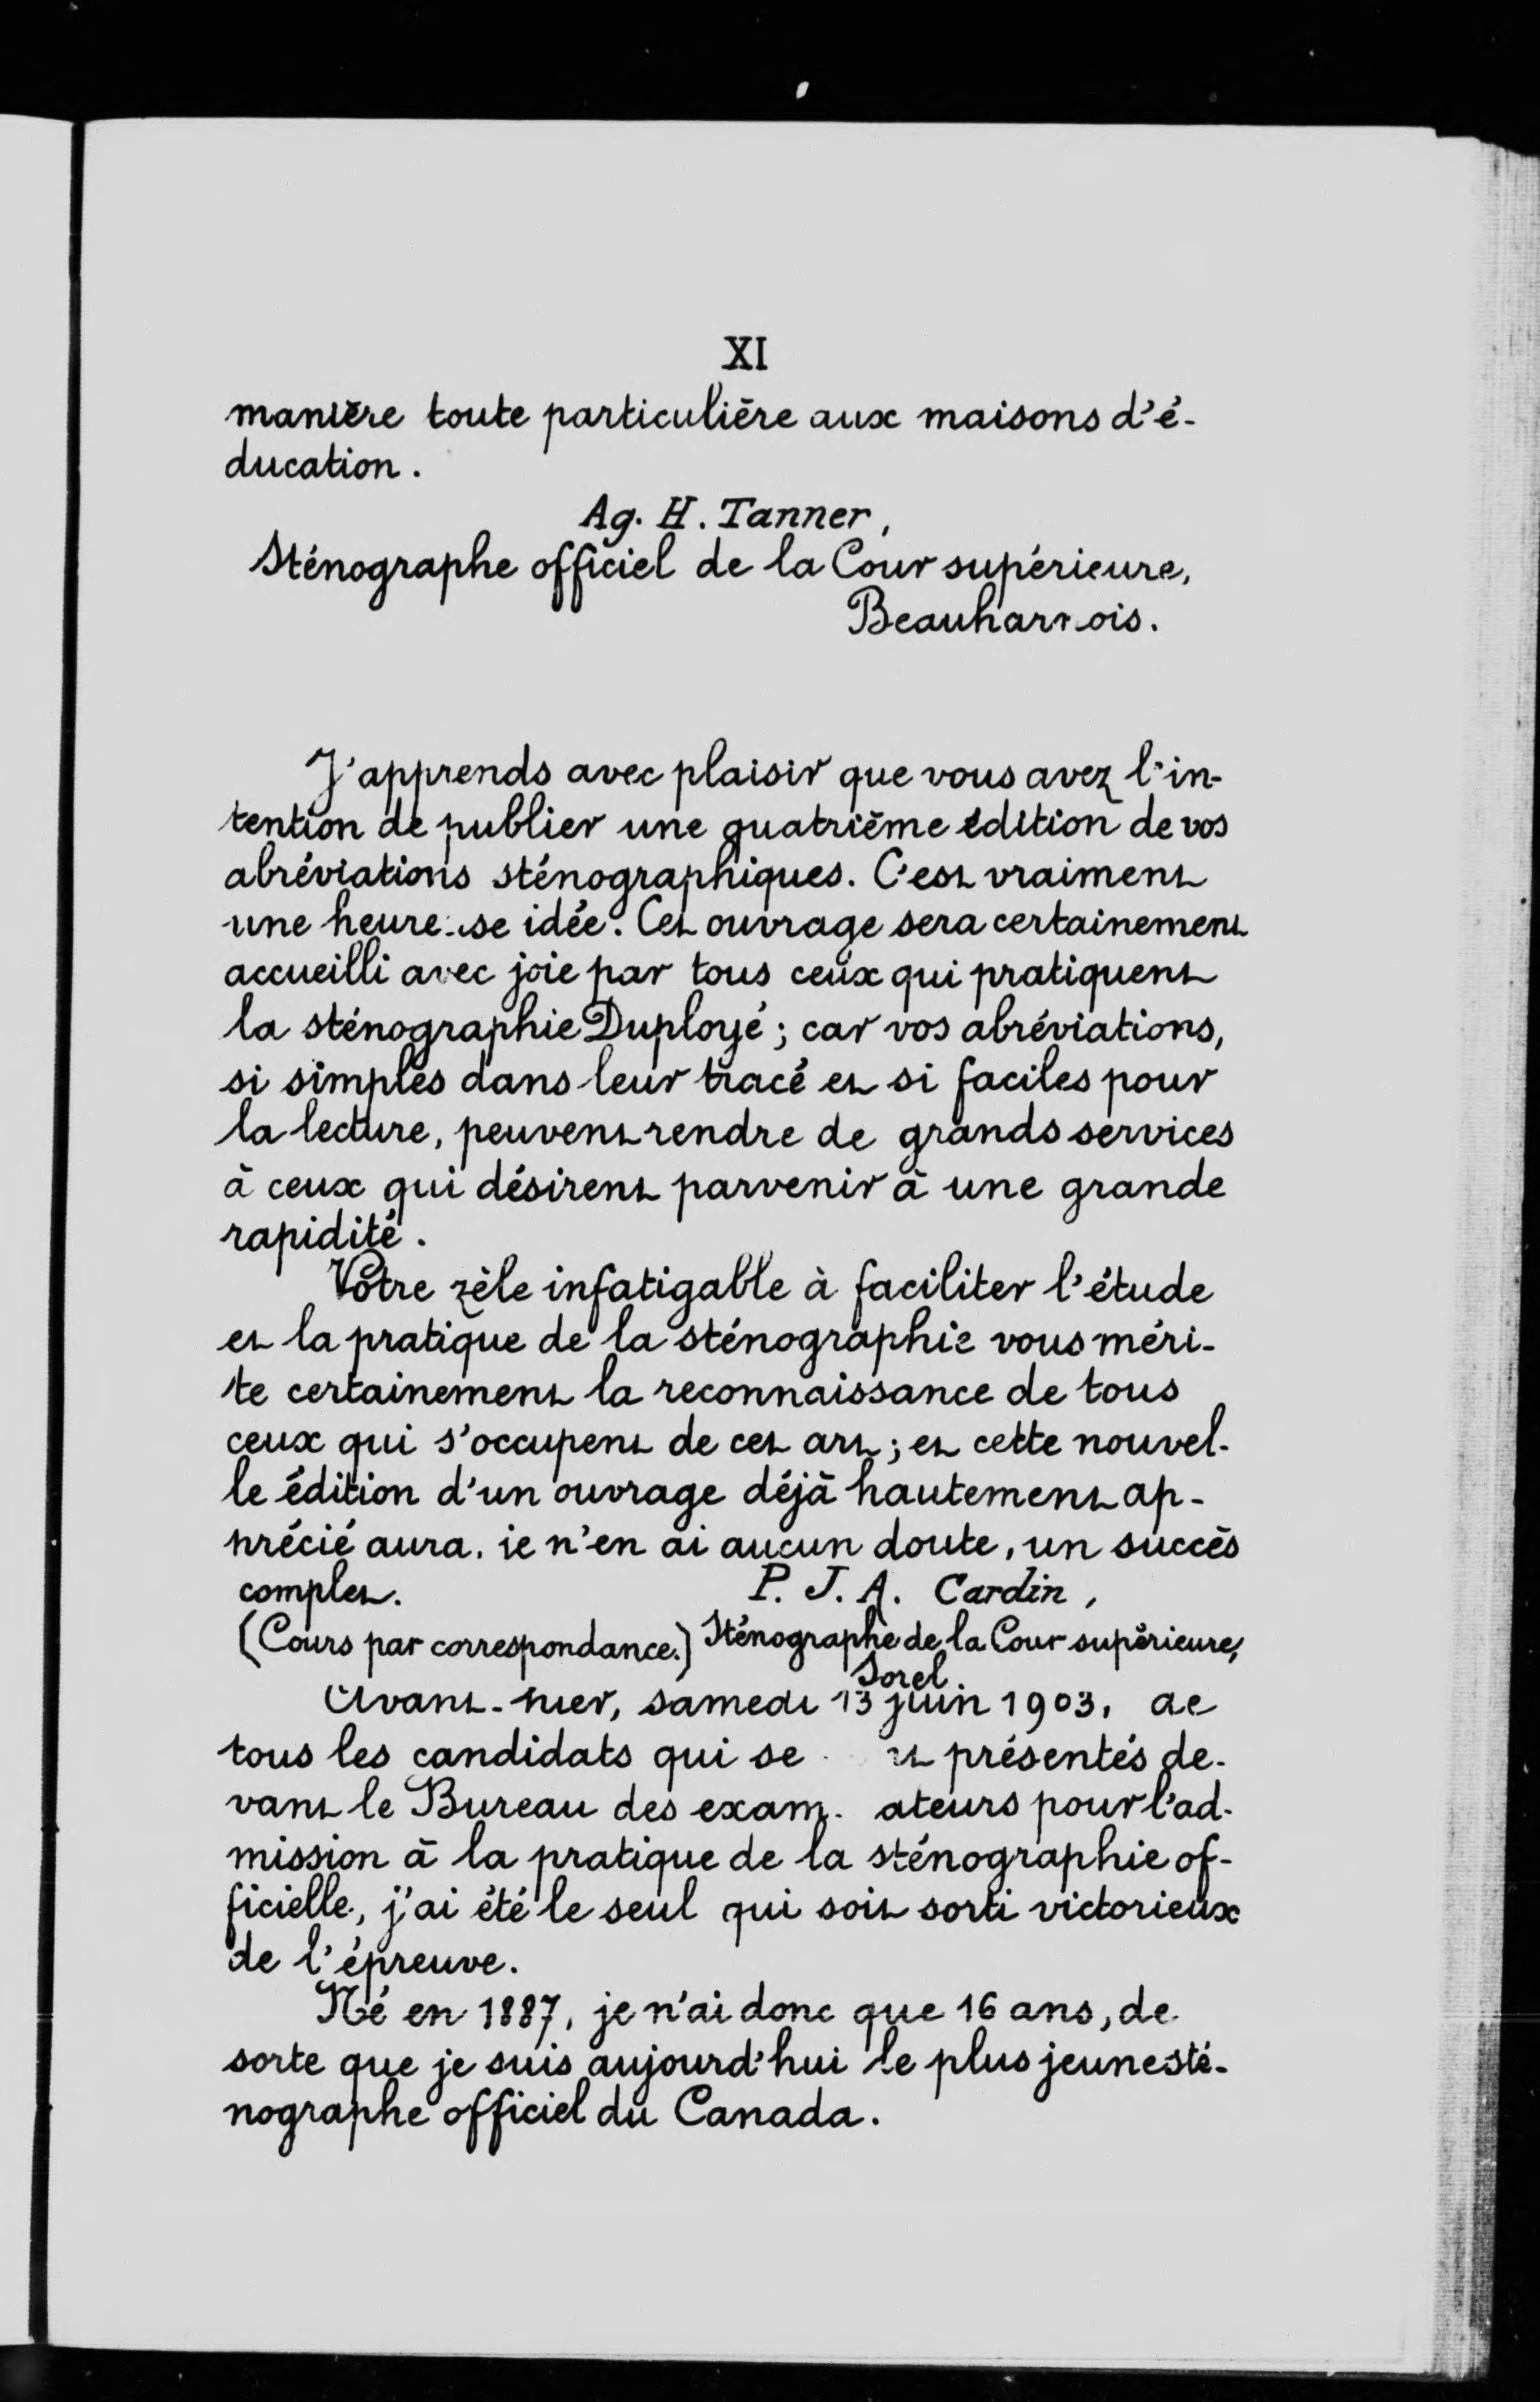 XI
manière toute particulière aux maisons d'é-
ducation.
Ag. H. Tanner,
Sténographe officiel de la Cour supérieure,
Beauharnois.
J'apprends avec plaisir que vous avez l'in-
tention de publier une quatrième édition de vos
abréviations sténographiques. C'est vraiment
une heureuse idée. Cet ouvrage sera certainement
accueilli avec joie par tous ceux qui pratiquent
la sténographie Duployé; car vos abréviations,
si simples dans leur tracé et si faciles pour
la lecture, peuvent rendre de grands services
à ceux qui désirent parvenir à une grande
rapidité.
Votre zèle infatigable à faciliter l'étude
et la pratique de la sténographie vous méri-
te certainement la reconnaissance de tous
ceux qui s'occupent de cet art; et cette nouvel-
le édition d'un ouvrage déjà hautement ap-
précié aura, je n'en ai aucun doute, un succès
complet. P. J. A. Cardin,
(Cours par correspondance.) Sténographe de la Cour supérieure,
Sorel.
Avant-hier, samedi 13 juin 1903, de
tous les candidats qui se présentés de-
vant le Bureau des exam. ateurs pour l'ad-
mission à la pratique de la sténographie of-
ficielle, j'ai été le seul qui soit sorti victorieux
de l'épreuve.
Né en 1887, je n'ai donc que 16 ans, de
sorte que je suis aujourd'hui le plus jeune sté-
nographe officiel du Canada.